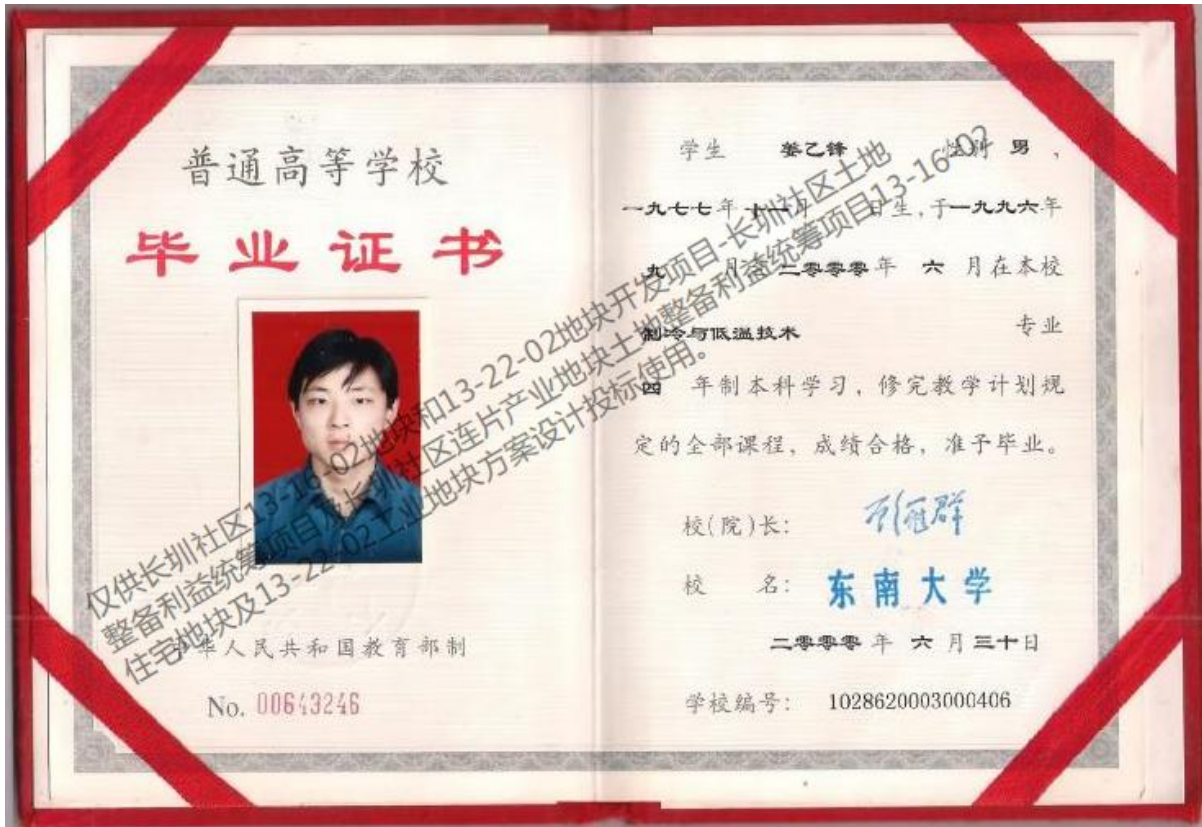 普通高等学校
毕业证书
中华人民共和国教育部制
No. 00643246
学生 姜乙锋 性别 男,
一九七七年十一月 日生,于一九九六年
九 月 二零零零年 六 月在本校
制冷与低温技术 专业
四 年制本科学习,修完教学计划规
定的全部课程,成绩合格,准予毕业。
校(院)长:
校 名: 东南大学
二零零零年 六月三十日
学校编号: 1028620003000406
仅供长圳社区13-16-02地块和13-22-02地块开发项目-长圳社区土地
整备利益统筹项目及长圳社区连片产业地块土地整备利益统筹项目13-16-02
住宅地块及13-22-02工业地块方案设计投标使用。